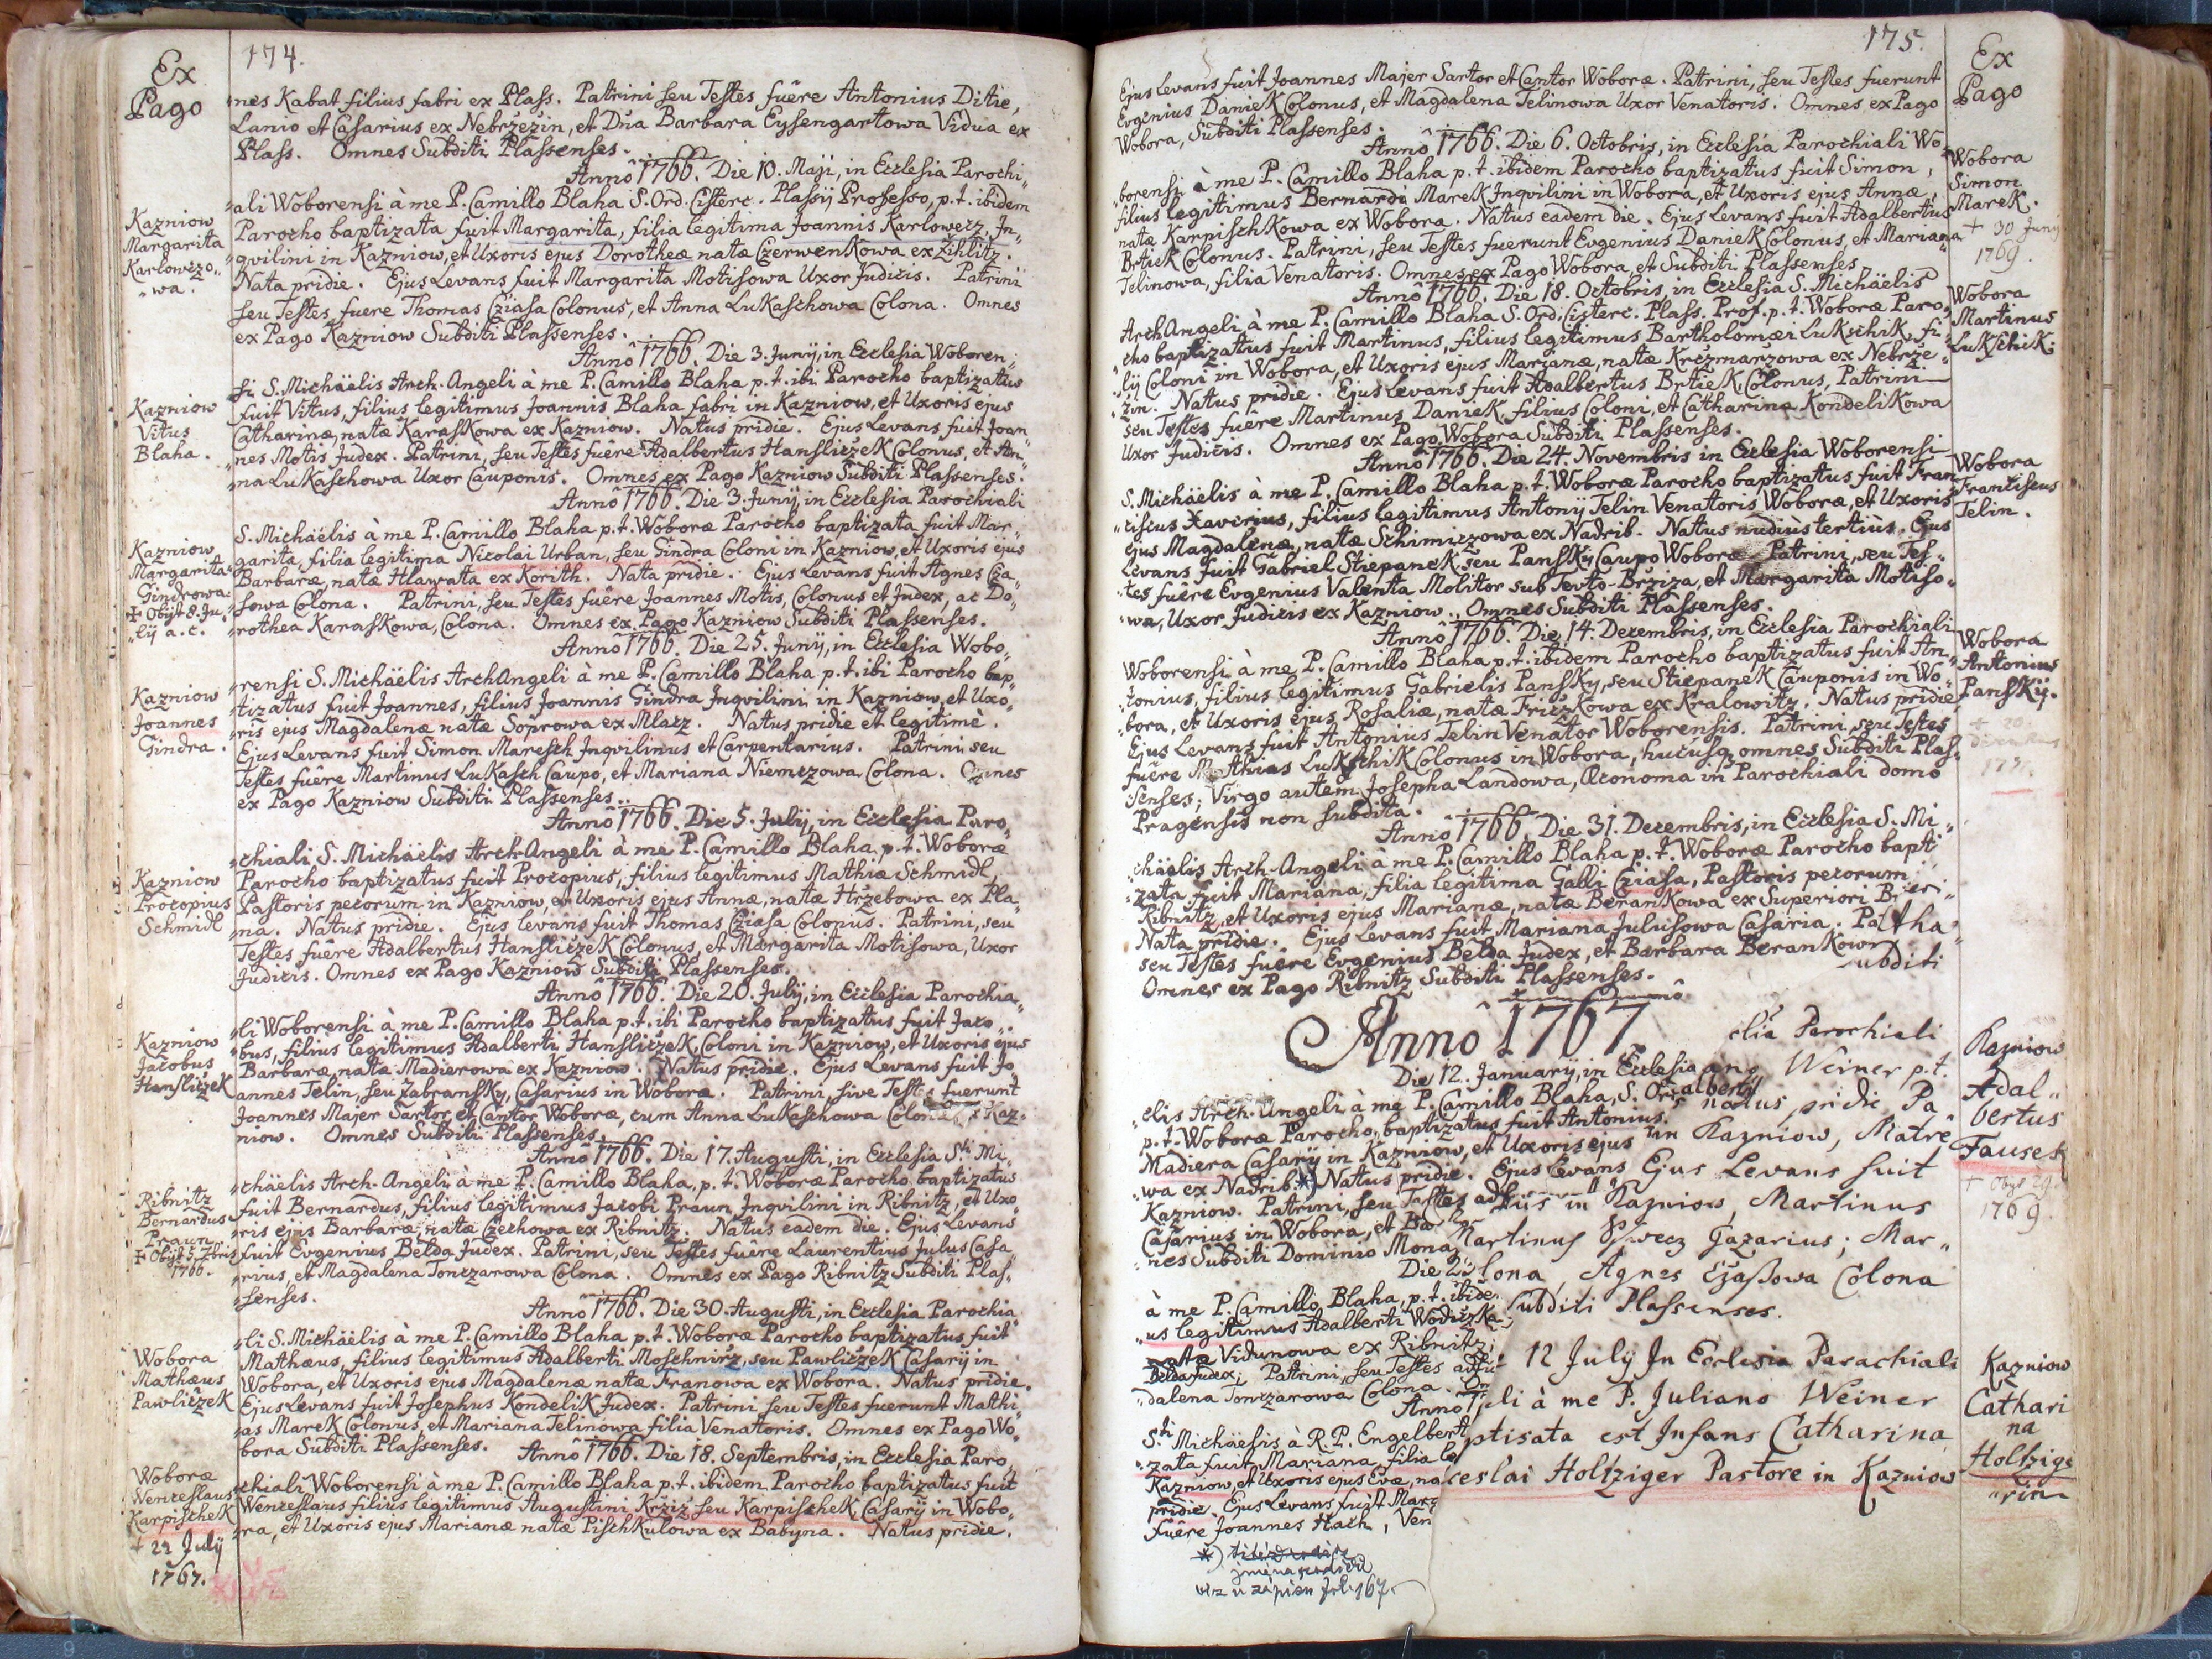 174.
Ex
Pago
„nes Kabat filius fabri ex Plass. Patrini seu Testes fuêre Antonius Ditie,
Lanio et Casarius ex Nebržežin, et Dña Barbara Eysengartowa Vidua ex
Plass. Omnes Subditi Plassenses.
Anno 1766. Die 10. Maji, in Ecclesia Parochi„
„ali Woborensi à me P. Camillo Blaha S. Ord. Cisterc. Plassij Professo, p. t. ibidem
Parocho baptizata fuit Margarita, filia legitima Joannis Karlowetz, In„
„qvilini in Kazniow, et Uxoris ejus Dorotheæ natæ Czerwenkowa ex Zihlitz.
Nata pridie. Ejus Levans fuit Margarita Motisowa Uxor Judicis. Patrini
seu Testes, fuere Thomas Cziasa Colonus, et Anna Lukaschowa Colona. Omnes
ex Pago Kazniow Subditi Plassenses.
Kazniow
Margarita
Karlowczo„
„wa.
Anno 1766. Die 3. Junij, in Ecclesia Woboren„
„si S. Michäelis Arch-Angeli à me P. Camillo Blaha p. t. ibi Parocho baptizatus
fuit Vitus, filius legitimus Joannis Blaha fabri in Kazniow, et Uxoris ejus
Catharinæ, natæ Karaskowa ex Kazniow. Natus pridie. Ejus Levans fuit Joan„
„nes Motis Judex. Patrini, seu Testes fuêre Adalbertus Hansliczek Colonus, et An„
„na Lukaschowa Uxor Cauponis. Omnes ex Pago Kazniow Subditi Plassenses.
Kazniow
Vitus
Blaha.
Anno 1766. Die 3. Junij, in Ecclesia Parochiali
S. Michäelis à me P. Camillo Blaha p. t. Woboræ Parocho baptizata fuit Mar„
„garita, filia legitima Nicolai Urban, seu Gindra Coloni in Kazniow, et Uxoris ejus
Barbaræ, natæ Hlawata ex Korith. Nata pridie. Ejus Levans fuit Agnes Cza„
„sowa Colona. Patrini, seu Testes fuêre Joannes Motis, Colonus et Judex, ac Do„
„rothea Karaskowa, Colona. Omnes ex Pago Kazniow Subditi Plassenses.
Kazniow
Margarita
Gindrowa.
✝ Obijt 8. Ju„
„lij a. c.
Anno 1766. Die 25. Junij, in Ecclesia Wobo„
„rensi S. Michäelis ArchAngeli à me P. Camillo Blaha p. t. ibi Parocho bap„
„tizatus fuit Joannes, filius Joannis Gindra Inqvilini in Kazniow, et Uxo„
„ris ejus Magdalenæ natæ Soprowa ex Mlatz. Natus pridie et legitime.
Ejus Levans fuit Simon Maresch Inqvilinus et Carpentarius. Patrini seu
Testes fuêre Martinus Lukasch Caupo, et Mariana Niemczowa Colona. Omnes
ex Pago Kazniow Subditi Plassenses.
Kazniow
Joannes
Gindra.
Anno 1766. Die 5. Julij, in Ecclesia Paro„
„chiali S. Michäelis Arch-Angeli à me P. Camillo Blaha p. t. Woboræ
Parocho baptizatus fuit Procopius, filius legitimus Mathiæ Schmidl,
Pastoris pecorum in Kazniow, et Uxoris ejus Annæ, natæ Hržebowa ex Pla„
„na. Natus pridie. Ejus Levans fuit Thomas Cziasa Colonus. Patrini, seu
Testes fuêre Adalbertus Hansliczek Colonus, et Margarita Motisowa, Uxor
Judicis. Omnes ex Pago Kazniow Subditi Plassenses.
Kazniow
Procopius
Schmidl
Anno 1766. Die 20. Julij, in Ecclesia Parochia„
„li Woborensi à me P. Camillo Blaha p. t. ibi Parocho baptizatus fuit Jaco„
„bus, filius legitimus Adalberti Hansliczek, Coloni in Kazniow, et Uxoris ejus
Barbaræ natæ Madierowa ex Kazniow. Natus pridie. Ejus Levans fuit Jo„
annes Telin, seu Zabransky, Casarius in Woboræ. Patrini, sive Testes fuerunt
Joannes Majer Sartor, et Cantor Woboræ, cum Anna Lukaschowa Colona ex Kaz„
niow. Omnes Subditi Plassenses.
Kazniow
Jacobus
Hansliczek
Anno 1766. Die 17. Augusti, in Ecclesia Sti. Mi„
„chäelis Arch-Angeli à me P. Camillo Blaha, p. t. Woboræ Parocho baptizatus
fuit Bernardus, filius legitimus Jacobi Praun Inqvilini in Ribnitz, et Uxo„
„ris ejus Barbaræ, natæ Czechowa ex Ribnitz. Natus eadem die. Ejus Levans
fuit Evgenius Belda Judex. Patrini, seu Testes fuêre Laurentius Julus Casa„
„rius, et Magdalena Tonczarowa Colona. Omnes ex Pago Ribnitz Subditi Plas„
„senses.
Ribnitz
Bernardus
Praun
✝ Obijt 5. 7bris
1766.
Anno 1766. Die 30. Augusti, in Ecclesia Parochia„
„li S. Michäelis à me P. Camillo Blaha p. t. Woboræ Parocho baptizatus fuit
Mathæus, filius legitimus Adalberti Moschnicz, seu Pawliczek Casarij in
Wobora, et Uxoris ejus Magdalenæ natæ Franowa ex Wobora. Natus pridie.
Ejus Levans fuit Josephus Kondelik Judex. Patrini seu Testes fuerunt Mathi„
„as Marek Colonus, et Mariana Telinowa filia Venatoris. Omnes ex Pago Wo„
bora Subditi Plassenses.
Wobora
Mathæus
Pawliczek
Anno 1766. Die 18. Septembris, in Ecclesia Paro„
„chiali Woborensi à me P. Camillo Blaha p. t. ibidem Parocho baptizatus fuit
Wenzeslaus filius legitimus Augustini Krziž seu Karpischek, Casarij in Wobo„
„ra, et Uxoris ejus Marianæ natæ Pischkulowa ex Babyna. Natus pridie.
Woboræ
Wenzeslaus
Karpischek
✝ 22 July
1767.
175.
Ex
Pago
Ejus Levans fuit Joannes Majer Sartor et Cantor Woboræ. Patrini, seu Testes fuerunt
Evgenius Daniek Colonus, et Magdalena Telinowa Uxor Venatoris. Omnes ex Pago
Wobora, Subditi Plassenses.
Anno 1766. Die 6. Octobris, in Ecclesia Parochiali Wo„
„borensi à me P. Camillo Blaha p. t. ibidem Parocho baptizatus fuit Simon,
filius legitimus Bernardi Marek Inqvilini in Wobora, et Uxoris ejus Annæ,
natæ Karpischkowa ex Wobora. Natus eadem die. Ejus Levans fuit Adalbertus
Brtiek Colonus. Patrini, seu Testes fuerunt Evgenius Daniek Colonus, et Mariana
Telinowa, filia Venatoris. Omnes ex Pago Wobora, et Subditi Plassenses
Wobora
Simon
Marek.
✝ 30 Juny
1769.
Anno 1766. Die 18. Octobris, in Ecclesia S. Michäelis
ArchAngeli à me P. Camillo Blaha S. Ord. Cisterc. Plass. Prof. p. t. Woboræ Paro„
„cho baptizatus fuit Martinus, filius legitimus Bartholomæi Lukschik, fi„
„lij Coloni in Wobora, et Uxoris ejus Marianæ, natæ Kržmaržowa ex Nebrže„
„žin. Natus pridie. Ejus Levans fuit Adalbertus Brtiek, Colonus, Patrini
seu Testes fuêre Martinus Daniek, filius Coloni, et Catharina Kondelikowa
Uxor Judicis. Omnes ex Pago Wobora Subditi Plassenses.
Wobora
Martinus
Lukschik.
Anno 1766. Die 24. Novembris in Ecclesia Woborensi
S. Michäelis à me P. Camillo Blaha p. t. Woboræ Parocho baptizatus fuit Fran„
„ciscus Xaverius, filius legitimus Antonij Telin Venatoris Woboræ, et Uxoris
ejus Magdalenæ, natæ Schimiczowa ex Nadrib. Natus nudiùs tertius. Ejus
Levans fuit Gabriel Stiepanek, seu Pansky Caupo Woboræ. Patrini, seu Tes„
„tes fuêre Evgenius Valenta Molitor sub Tevto-Bržiza, et Margarita Motiso„
„wa, Uxor Judicis ex Kazniow. Omnes Subditi Plassenses.
Wobora
Franciscus
Telin.
Anno 1766. Die 14. Decembris, in Ecclesia Parochiali
Woborensi à me P. Camillo Blaha p. t. ibidem Parocho baptizatus fuit An„
„tonius, filius legitimus Gabrielis Pansky, seu Stiepanek Cauponis in Wo„
„bora, et Uxoris ejus Rosaliæ, natæ Friczkowa ex Kralowitz. Natus pridie
Ejus Levans fuit Antonius Telin Venator Woborensis. Patrini, seu Testes
fuêre Mathias Lukschik Colonus in Wobora, hucusq. omnes Subditi Plas„
„senses; Virgo autem Josepha Landowa, Œconoma in Parochiali domo
Pragensis non subdita.
Wobora
Antonius
Panskij.
Anno 1766. Die 31. Decembris, in Ecclesia S. Mi„
„chäelis Arch-Angeli à me P. Camillo Blaha p. t. Woboræ Parocho bapti„
„zata fuit Mariana, filia legitima Galli Cziasa, Pastoris pecorum
Ribnitz, et Uxoris ejus Marianæ, natæ Berankowa ex Superiori
Nata pridie. Ejus Levans fuit Mariana Julusowa Casaria.
seu Testes fuêre Evgenius Belda Judex, et Barbara Berankowa
Omnes ex Pago Ribnitz Subditi Plassenses.
Anno 1767
Die 12. Januarij, in Ecclesia
elis Arch-Angeli à me P. Camillo Blaha, S. Or
p. t. Woboræ Parocho, baptizatus fuit Antonius
Madiera Casarij in Kazniow, et Uxoris ejus
„wa ex Nadrib. *) Natus pridie. Ejus Levans
Kazniow. Patrini, seu Testes
Casarius in Wobora, et Bar
nes Subditi Dominio Mona
à me P. Camillo Blaha, p. t. ibide
„us legitimus Adalberti Wodiczka
nata Vidunowa ex Ribnitz;
Belda Judex; Patrini, seu Testes
dalena Tonczarowa Colona.
Anno
S.ti Michäelis à R. P. Engelbert
„zata fuit Mariana, filia le
Kazniow, et Uxoris ejus Evæ, na
pridie. Ejus Levans fuit Mar
fuêre Joannes Hach, Ven
Parochiali
Weiner p. t.
natus pridie Pa„
in Kazniow, Matre
Ejus Levans fuit
in Kazniow, Martinus
Martinus Gazarius; Mar„
Colona, Agnes Czaßowa Colona
Subditi Plassenses.
Kazniow
Adal„
bertus
Fausek
1769.
12 July In Ecclesia Parachiali
à me P. Juliano Weiner
ptisata est Infans Catharina
ceslai Holtziger Pastore in Kazniow
Kazniow
Cathari
na
Holtzige
„rin